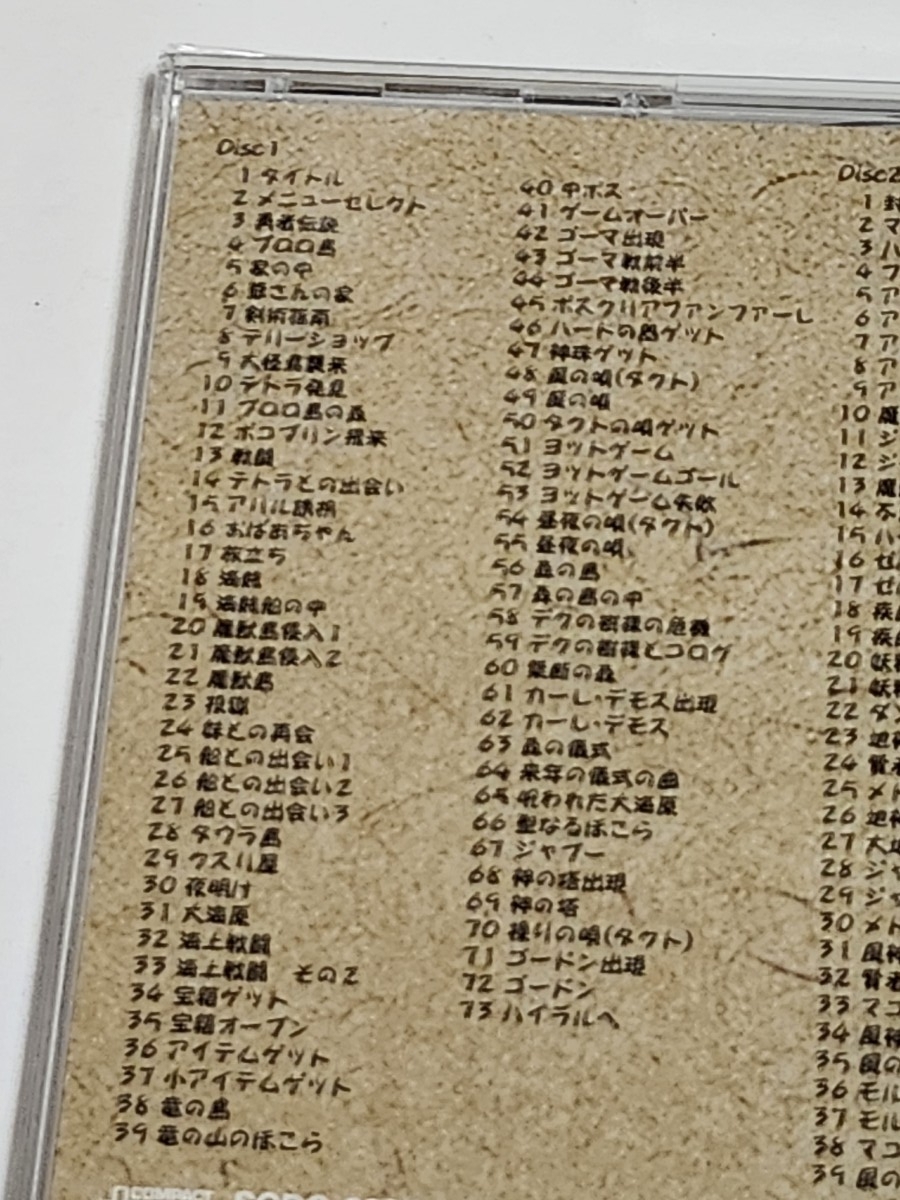 Disc1
1 タイトル
2 メニューセレクト
3 勇者伝説
4 プロロ島
5 家の中
6 爺さんの家
7 剣術指南
8 テリーショップ
9 大怪鳥襲来
10 テトラ発見
11 プロロ島の森
12 ボコブリン飛来
13 戦闘
14 テトラとの出会い
15 アリル誘拐
16 おばあちゃん
17 旅立ち
18 海賊
19 海賊船の中
20 魔獣島侵入1
21 魔獣島侵入2
22 魔獣島
23 投獄
24 妹との再会
25 船との出会い1
26 船との出会い2
27 船との出会い3
28 タウラ島
29 クスリ屋
30 夜明け
31 大海原
32 海上戦闘
33 海上戦闘 その2
34 宝箱ゲット
35 宝箱オープン
36 アイテムゲット
37 小アイテムゲット
38 竜の島
39 竜の山のほこら
40 中ボス
41 ゲームオーバー
42 ゴーマ出現
43 ゴーマ戦前半
44 ゴーマ戦後半
45 ボスクリアファンファーレ
46 ハートの器ゲット
47 神珠ゲット
48 風の唄(タクト)
49 風の唄
50 タクトの唄ゲット
51 ヨットゲーム
52 ヨットゲームゴール
53 ヨットゲーム失敗
54 昼夜の唄(タクト)
55 昼夜の唄
56 森の島
57 森の島の中
58 デクの樹様の危機
59 デクの樹様とコログ
60 禁断の森
61 カーレ・デモス出現
62 カーレ・デモス
63 森の儀式
64 来年の儀式の曲
65 呪われた大海原
66 聖なるほこら
67 ジャブー
68 神の塔出現
69 神の塔
70 操りの唄(タクト)
71 ゴードン出現
72 ゴードン
73 ハイラルへ
Disc2
1 封
2 マ
3 ハ
4 フ
5 ア
6 ア
7 ア
8 ア
9 ア
10 魔
11 ジ
12 ジ
13 魔
14 不
15 ハ
16 ゼ
17 ゼ
18 疾
19 疾
20 妖
21 妖
22 ダン
23 地神
24 賢者
25 メド
26 地神
27 大地
28 ジャ
29 ジャ
30 メド
31 風神
32 賢者
33 マコ
34 風神
35 風の
36 モル
37 モル
38 マコ
39 風の
COMPACT